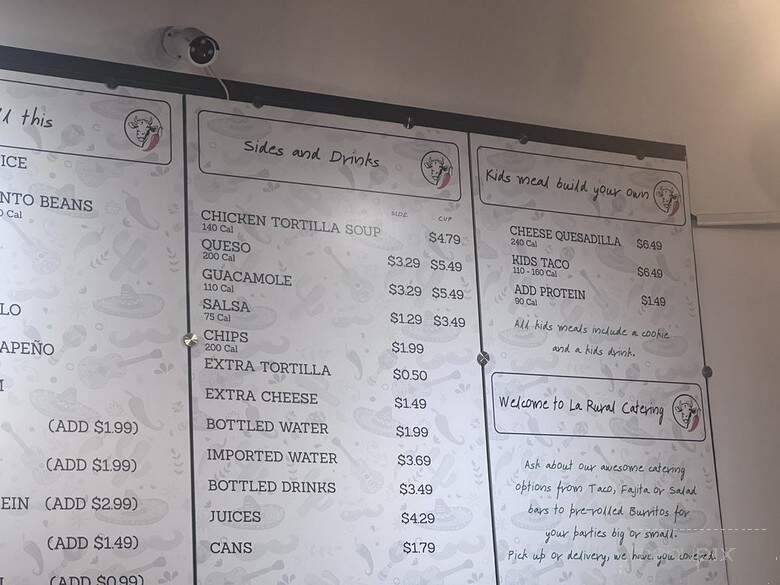 this
ICE
NTO BEANS
0 Cal
LO
APEÑO
(ADD $1.99)
(ADD $1.99)
EIN (ADD $2.99)
(ADD $1.49)
(ADD $0.99)
Sides and Drinks
SIDE CUP
CHICKEN TORTILLA SOUP $4.79
140 Cal
QUESO $3.29 $5.49
200 Cal
GUACAMOLE $3.29 $5.49
110 Cal
SALSA $1.29 $3.49
75 Cal
CHIPS $1.99
200 Cal
EXTRA TORTILLA $0.50
EXTRA CHEESE $1.49
BOTTLED WATER $1.99
IMPORTED WATER $3.69
BOTTLED DRINKS $3.49
JUICES $4.29
CANS $1.79
Kids meal build your own
CHEESE QUESADILLA $6.49
240 Cal
KIDS TACO $6.49
110 - 160 Cal
ADD PROTEIN $1.49
90 Cal
All kids meals include a cookie
and a kids drink.
Welcome to La Rural Catering
Ask about our awesome catering
options from Taco, Fajita or Salad
bars to pre-rolled Burritos for
your parties big or small.
Pick up or delivery, we have you covered.